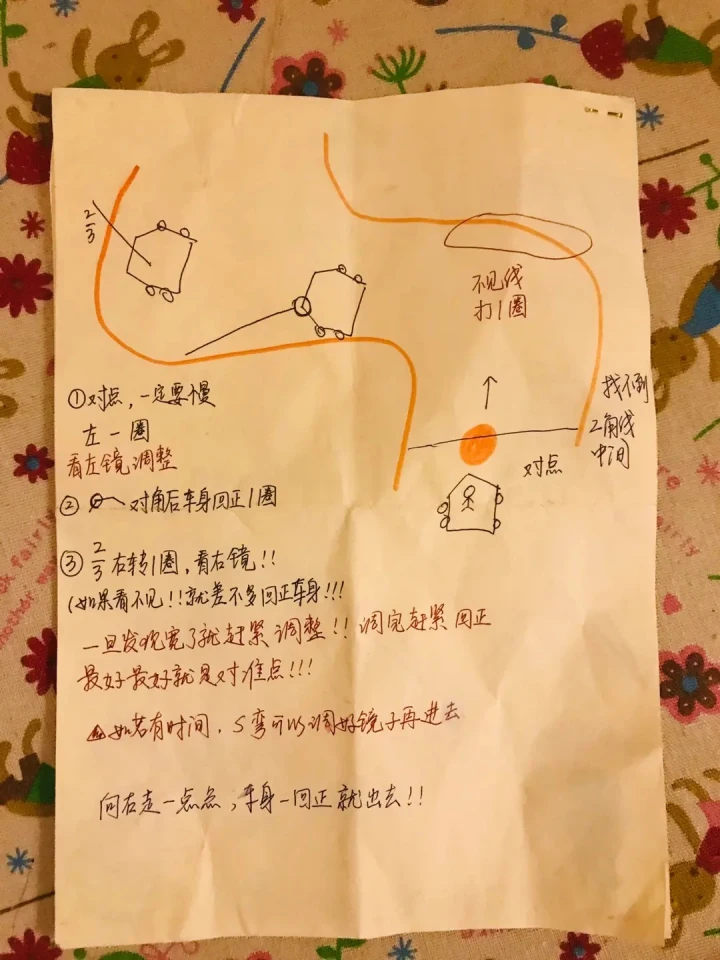 2/3
不见线
打1圈
找不到
2角线
中间
对点
①对点，一定要慢
左一圈
看左镜调整
② 对角后车身回正1圈
③ 2/3右转1圈，看右镜!!
(如果看不见!!就差不多回正车身!!!
一旦发现宽了就赶紧调整!! 调完赶紧回正
最好最好就是对准点!!!
如若有时间，S弯可以调好镜子再进去
向右走一点点，车身一回正就出去!!
fairly